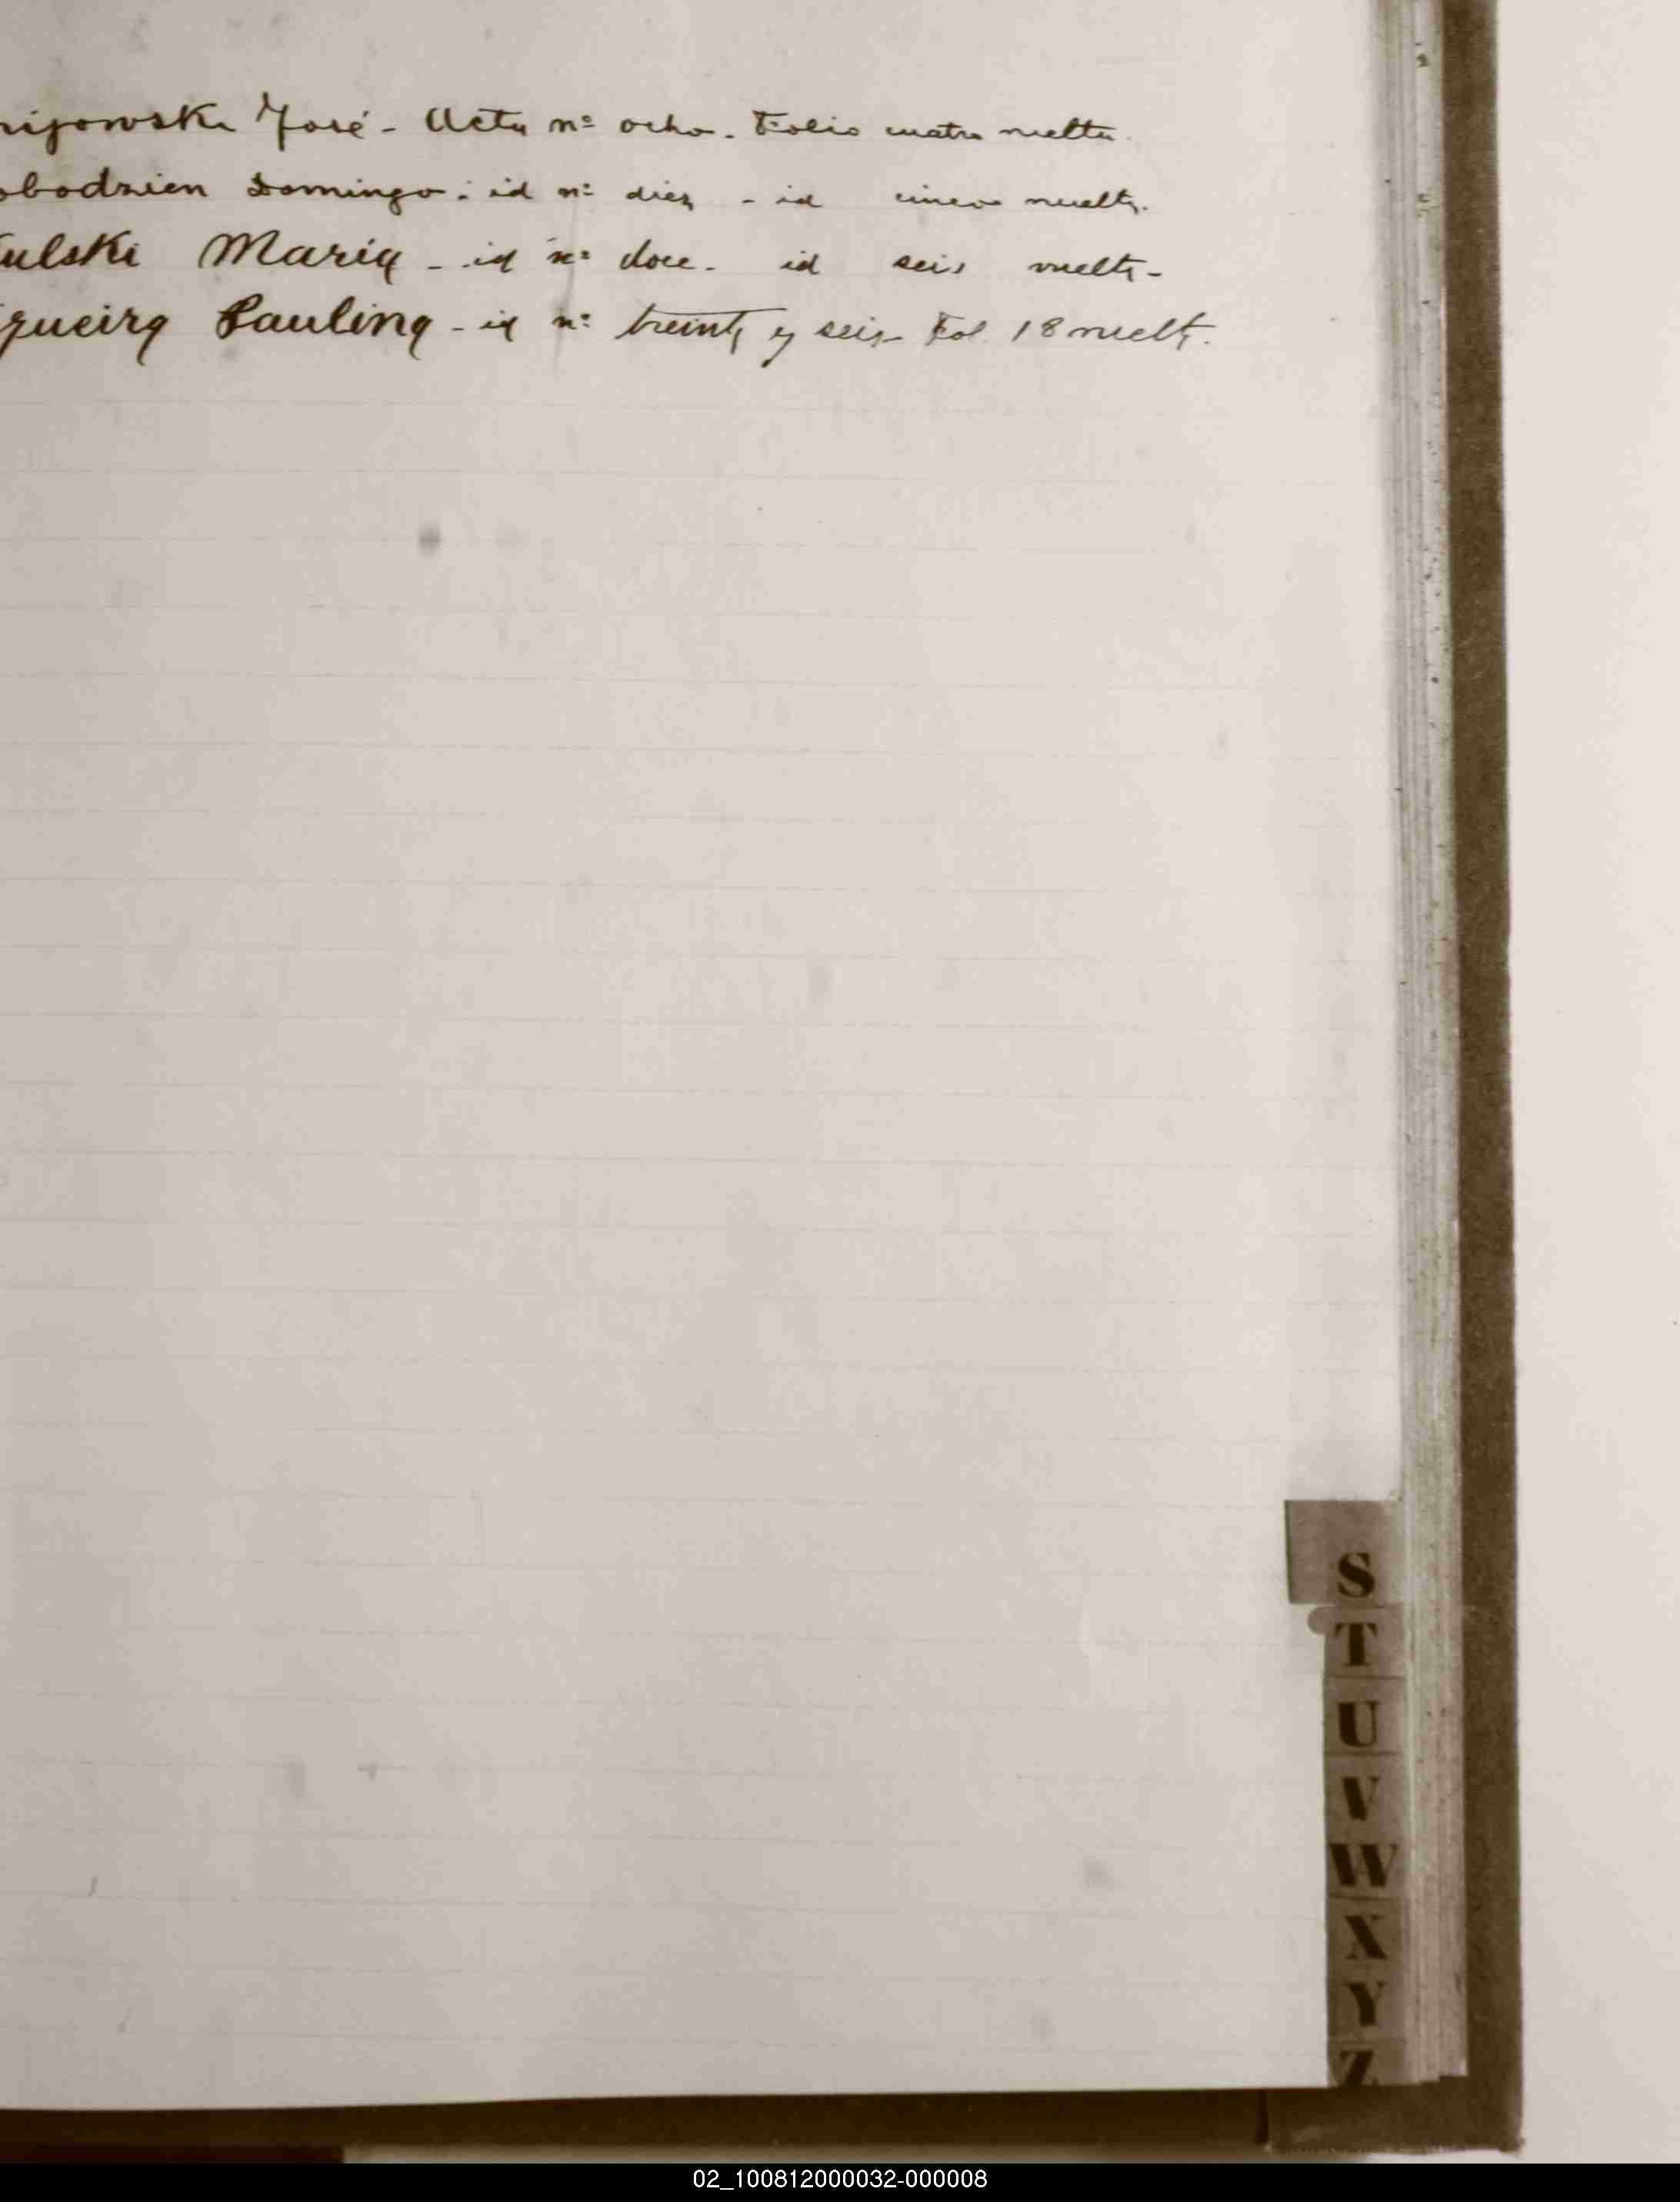 nijowski José - Acta nº ocho. Folio cuatro vuelta.
obodzien Domingo. id nº diez - id cinco vuelta.
ulski Maria - id nº doce. id seis vuelta -
gueira Paulina - id nº treinta y seis Fol. 18 vuelt.
S
T
U
V
W
X
Y
Z
02_100812000032-000008